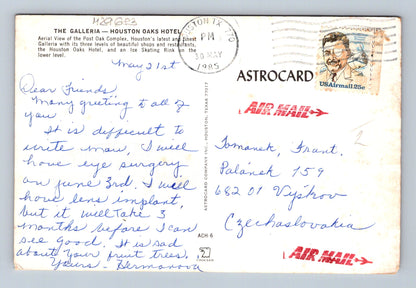 M291683
THE GALLERIA — HOUSTON OAKS HOTEL
Aerial View of the Post Oak Complex, Houston's latest and finest
Galleria with its three levels of beautiful shops and restaurants,
the Houston Oaks Hotel, and an Ice Skating Rink on the
lower level.
May 21st
Dear Friends,
Many greeting to all of
you.
It is difficult to
write now, I will
have eye surgery
on June 3rd. I will
have lens implant,
but it will take 3
months before I can
see good. It is sad
about your fruit trees.
Yours - Hermanova
ASTROCARD COMPANY INC., HOUSTON, TEXAS 77017
ACH 6
HOUSTON TX
PM
30 MAY
1985
ASTROCARD
USAirmail 25c
AIR MAIL
Tomanek, Frant.
Palánek 159
682 01 Vyškov
Czechaslovakia
AIR MAIL
2